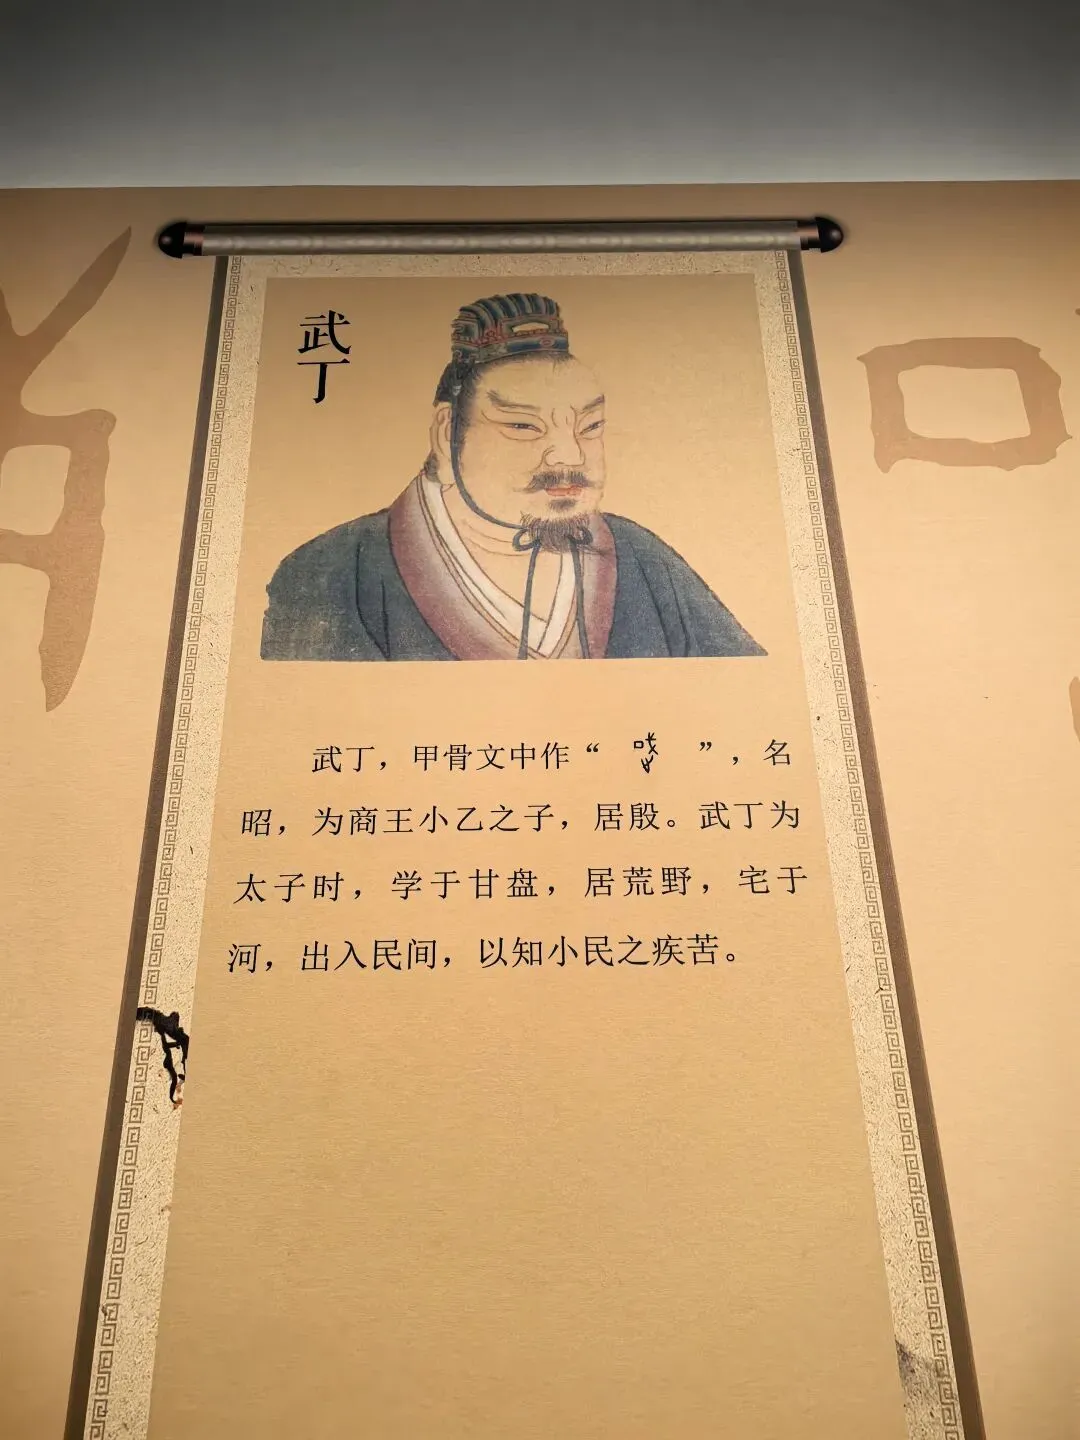 武丁
武丁，甲骨文中作“ ”，名
昭，为商王小乙之子，居殷。武丁为
太子时，学于甘盘，居荒野，宅于
河，出入民间，以知小民之疾苦。